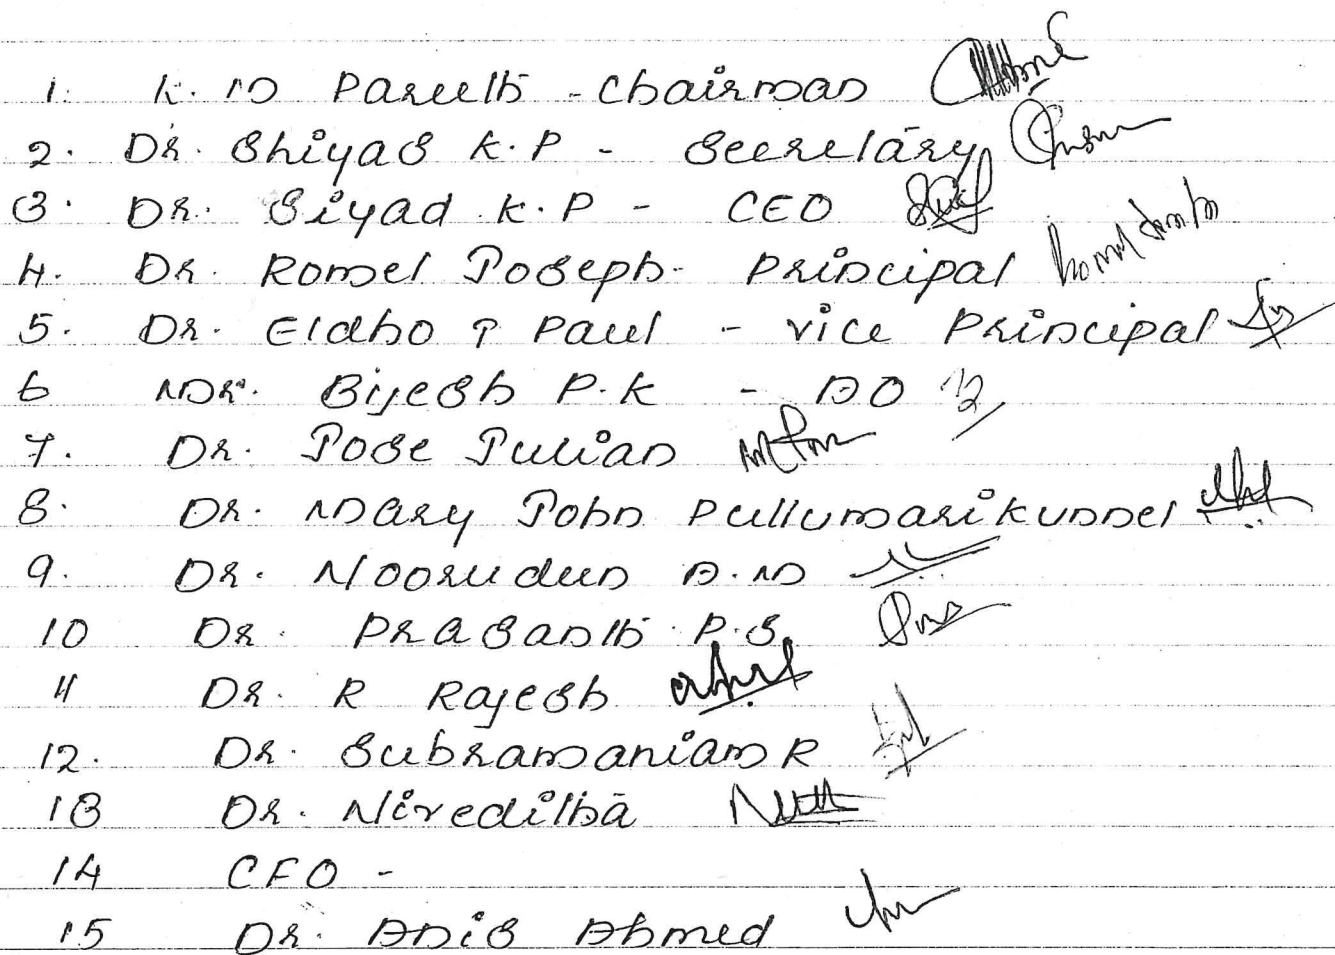 1. K. M Pareeth - Chairman
2. Dr. Shiyas K.P - Secretary
3. Dr. Siyad K.P - CEO
4. Dr. Romel Joseph - Principal
5. Dr. Eldho P Paul - Vice Principal
6 Mr. Bijesh P.K - AO
7. Dr. Jose Julian
8. Dr. Mary John Pullumarikunnel
9. Dr. Noorudeen A.M
10 Dr. Prasanth P.S.
11 Dr. R Rajesh
12. Dr. Subramaniam R
13 Dr. Niveditha
14 CFO -
15 Dr. Anis Ahmed